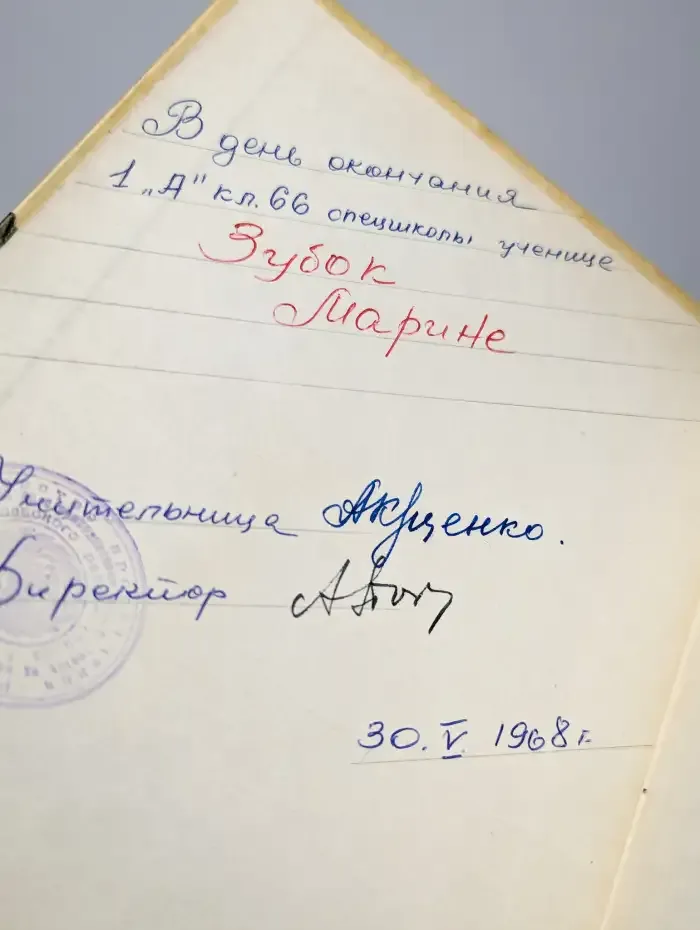 В день окончания
1 „А" кл. 66 спецшколы ученице
Зубок
Марине
Учительница
Директор
30. V 1968 г.